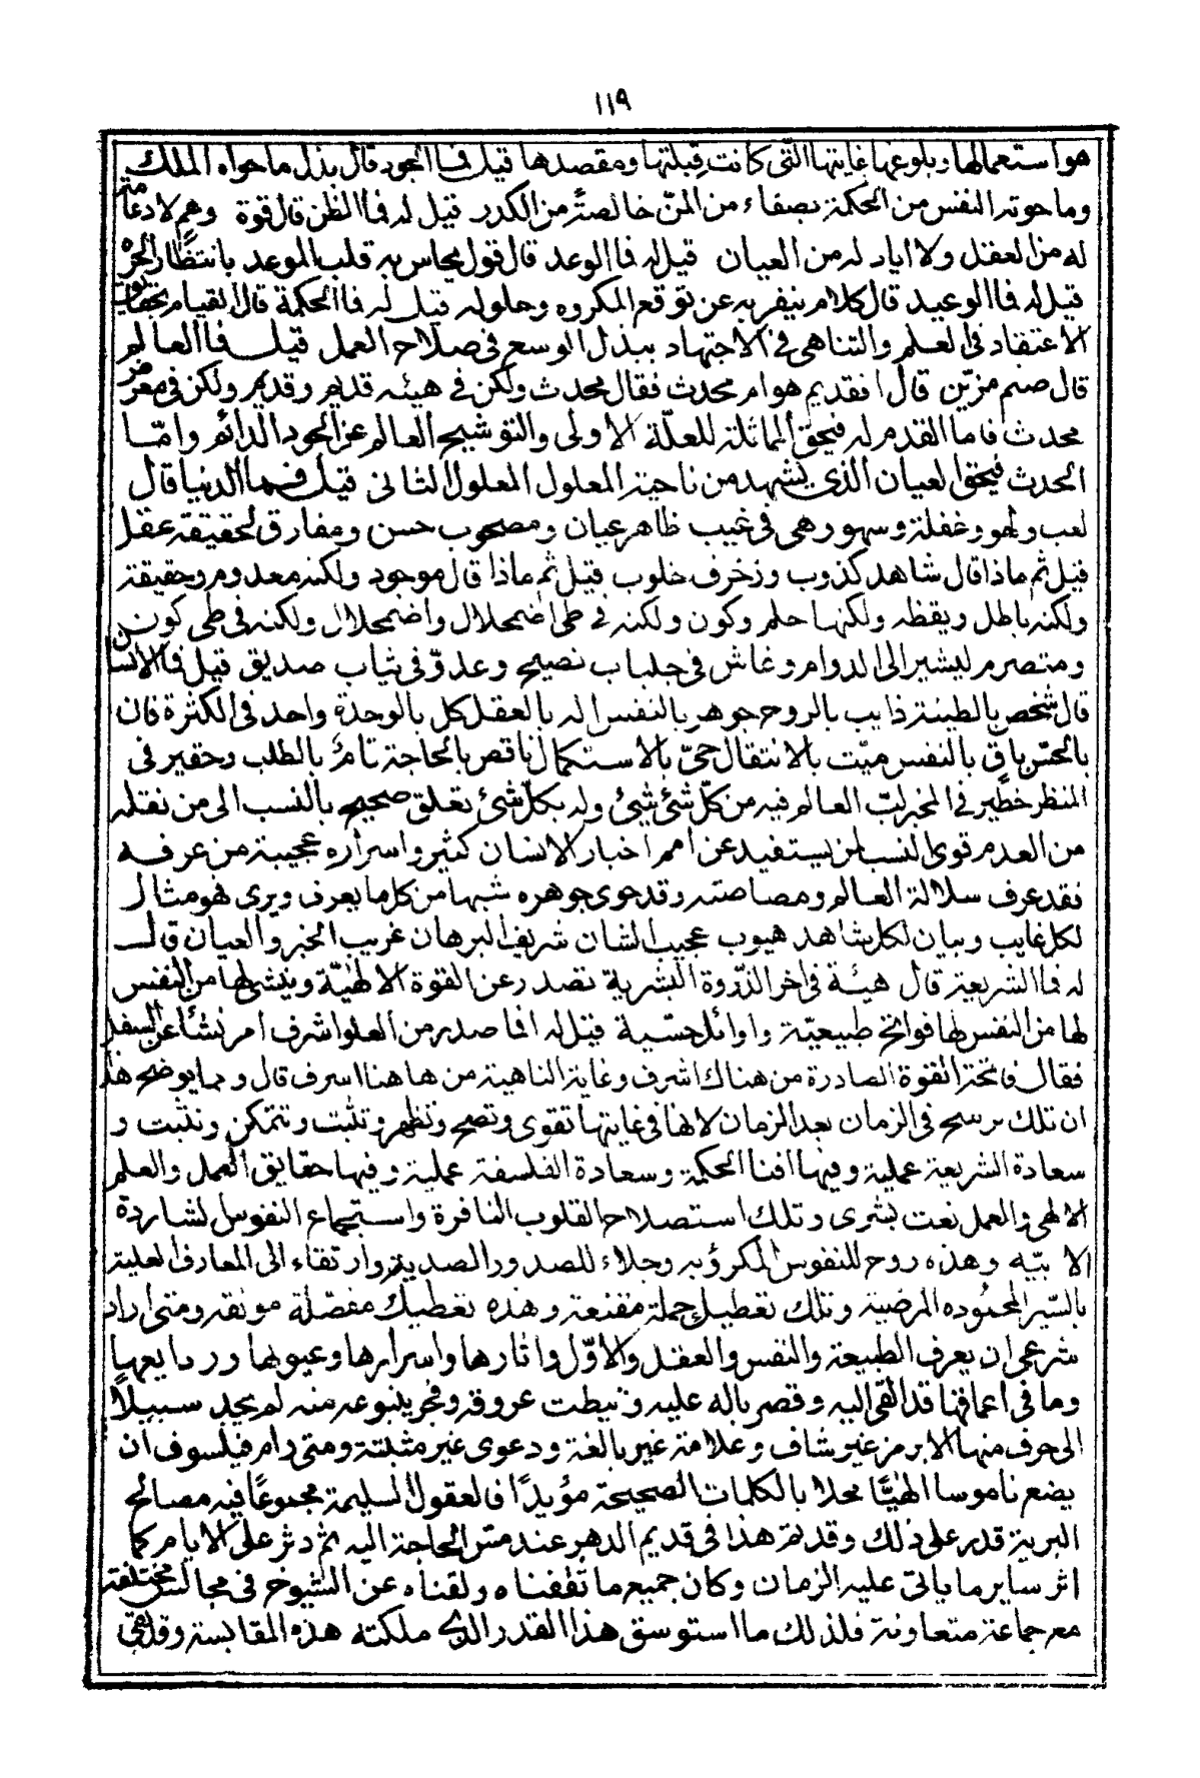 ١١٩
هو استعمالها وبلوغها غايتها التي كانت قبلتها ومقصدها قيل فما الجود قال بذل ما حواه الملك
وما حوته النفس من الحكمة بصفاء من المنّ خالصةً من الكدر قيل له فما الظن قال قوة وهم لا دعامة
له من العقل ولا اياد له من العيان قيل له فما الوعد قال قول يجاس به قلب الموعد بانتظار الخير
قيل له فما الوعيد قال كلام ينفر به عن توقع المكروه وحلوله قيل له فما الحكمة قال القيام بحقايق
الاعتقاد في العلم والتناهي في الاجتهاد ببذل الوسع في صلاح العمل قيل فما العالم
قال صنم مزيّن قال افقديم هو ام محدث فقال محدث ولكن في هيئه قديم وقديم ولكن في معرض
محدث فاما القدم له فبحق المماثلة للعلّة الاولى والتوشيح العالم عن الجود الدائم وامّا
الحدث فبحق العيان الذي يشهد من ناحية المعلول المعلول الثاني قيل فما الدنيا قال
لعب ولهو وغفلة وسهو وهي في غيب ظاهر عيان ومصحوب حسن ومفارق لحقيقة عقل
قيل ثم ماذا قال شاهد كذوب وزخرف خلوب قيل ثم ماذا قال موجود ولكنه معدوم وحقيقة
ولكنه باطل ويقظه ولكنها حلم وكون ولكنه في طى اضمحلال واضمحلال ولكنه في طى كون
ومتصرم ليشير الى الدوام وغاش في جلباب نصيح وعدوّ في ثياب صديق قيل فما الانسان
قال شخص بالطينة ذايب بالروح جوهر بالنفس اله بالعقل كل بالوحدة واحد في الكثرة فان
بالحسّ باق بالنفس ميّت بالانتقال حيّ بالاستكمال ناقص بالحاجة تامٌ بالطلب وحقير في
المنظر خطير في المخبر لبّ العالم فيه من كلّ شئ شئ وله بكلّ شئ تعلق صحيح بالنسب الى من نقله
من العدم قوى النسب لمن يستفيد عن امم اخبار الانسان كثير واسراره عجيبة من عرفه
فقد عرف سلالة العالم ومصاصته وقد حوى جوهره شبها من كل ما يعرف ويرى فهو مثال
لكل غايب وبيان لكل شاهد هيوب عجيب الشان شريف البرهان غريب الخبر والعيان قال
له فما الشريعة قال هيئة في اخر الذروة البشرية تصدر عن القوة الالهيّة وينشى لها من النفس
لها من النفس لها فواتح طبيعيّة واوائل حسّية قيل له افما صدر من العلو اشرف ام نشأ عن السفل
فقال فاتحة القوة الصادرة من هناك اشرف وغاية الناهية من هاهنا اسرف قال ومما يوضح هذا
ان تلك ترسخ في الزمان بعد الزمان لانها في غايتها تقوى وتصح وتظهر وتثبت وتتمكن وتثبت و
سعادة الشريعة عملية وفيها افنا الحكمة وسعادة الفلسفة عملية وفيها حقايق العمل والعلم
الالهي والعمل نعت بشرى وتلك استصلاح القلوب النافرة واستجماع النفوس الشاردة
الابيّه وهذه روح للنفوس المكروبه وجلاء للصدور الصدية وارتقاء الى المعارف العلية
بالسّير المحموده المرضية وتلك تعطيك جملة مقنعة وهذه تعطيك مفصّلة مونقه ومتى اراد
شرعي ان يعرف الطبيعة والنفس والعقل والاوّل واثارها واسرارها وعيونها وردايعها
وما في اعماقها قد القى اليه وقصر باله عليه ونيطت عروقه وفجر ينبوعه منه لم يجد سبيلًا
الى حرف منها الا برمز غير شاف وعلامة غير بالغة ودعوى غير مثبتة ومتى رام فيلسوف ان
يضع ناموسا الهيًّا محلا بالكلمات الصحيحة مؤيدًا فالعقول السليمة مجموعًا فيه مصالح
البرية قدر على ذلك وقد تم هذا في قديم الدهر عند متن الحاجة اليه ثم دثر على الايام كما
اثر ساير ما ياتى عليه الزمان وكان جميع ما ثقفناه ولقناه عن الشيوخ في مجالس مختلفة
مع جماعة متعاونة فلذلك ما استوسق هذا القدر الذي ملكته هذه المقابسة وقد بقي